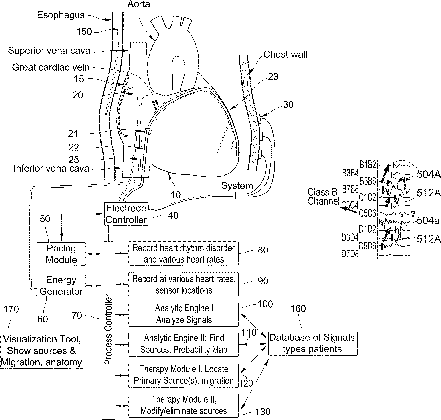 Aorta
Esophagus
150
Superior vena cava
Great cardiac vein
15
20
21
22
25
Inferior vena cava
10
Chest wall
29
30
System
Electrode
Controller
40
50
Pacing
Module
Energy
Generator
60
70
Process Controller
170
Visualization Tool,
Show sources &
Migration, anatomy
Record heart rhythm disorder
and various heart rates
80
Record at various heart rates,
sensor locations
90
Analytic Engine I
Analyze Signals
100
Analytic Engine II: Find
Sources, Probability Map
110
Therapy Module I, Locate
Primary Source(s), migration
120
Therapy Module II,
Modify/eliminate sources
130
160
Database of Signals
types patients
Class B
Channel
504A
512A
504a
512A